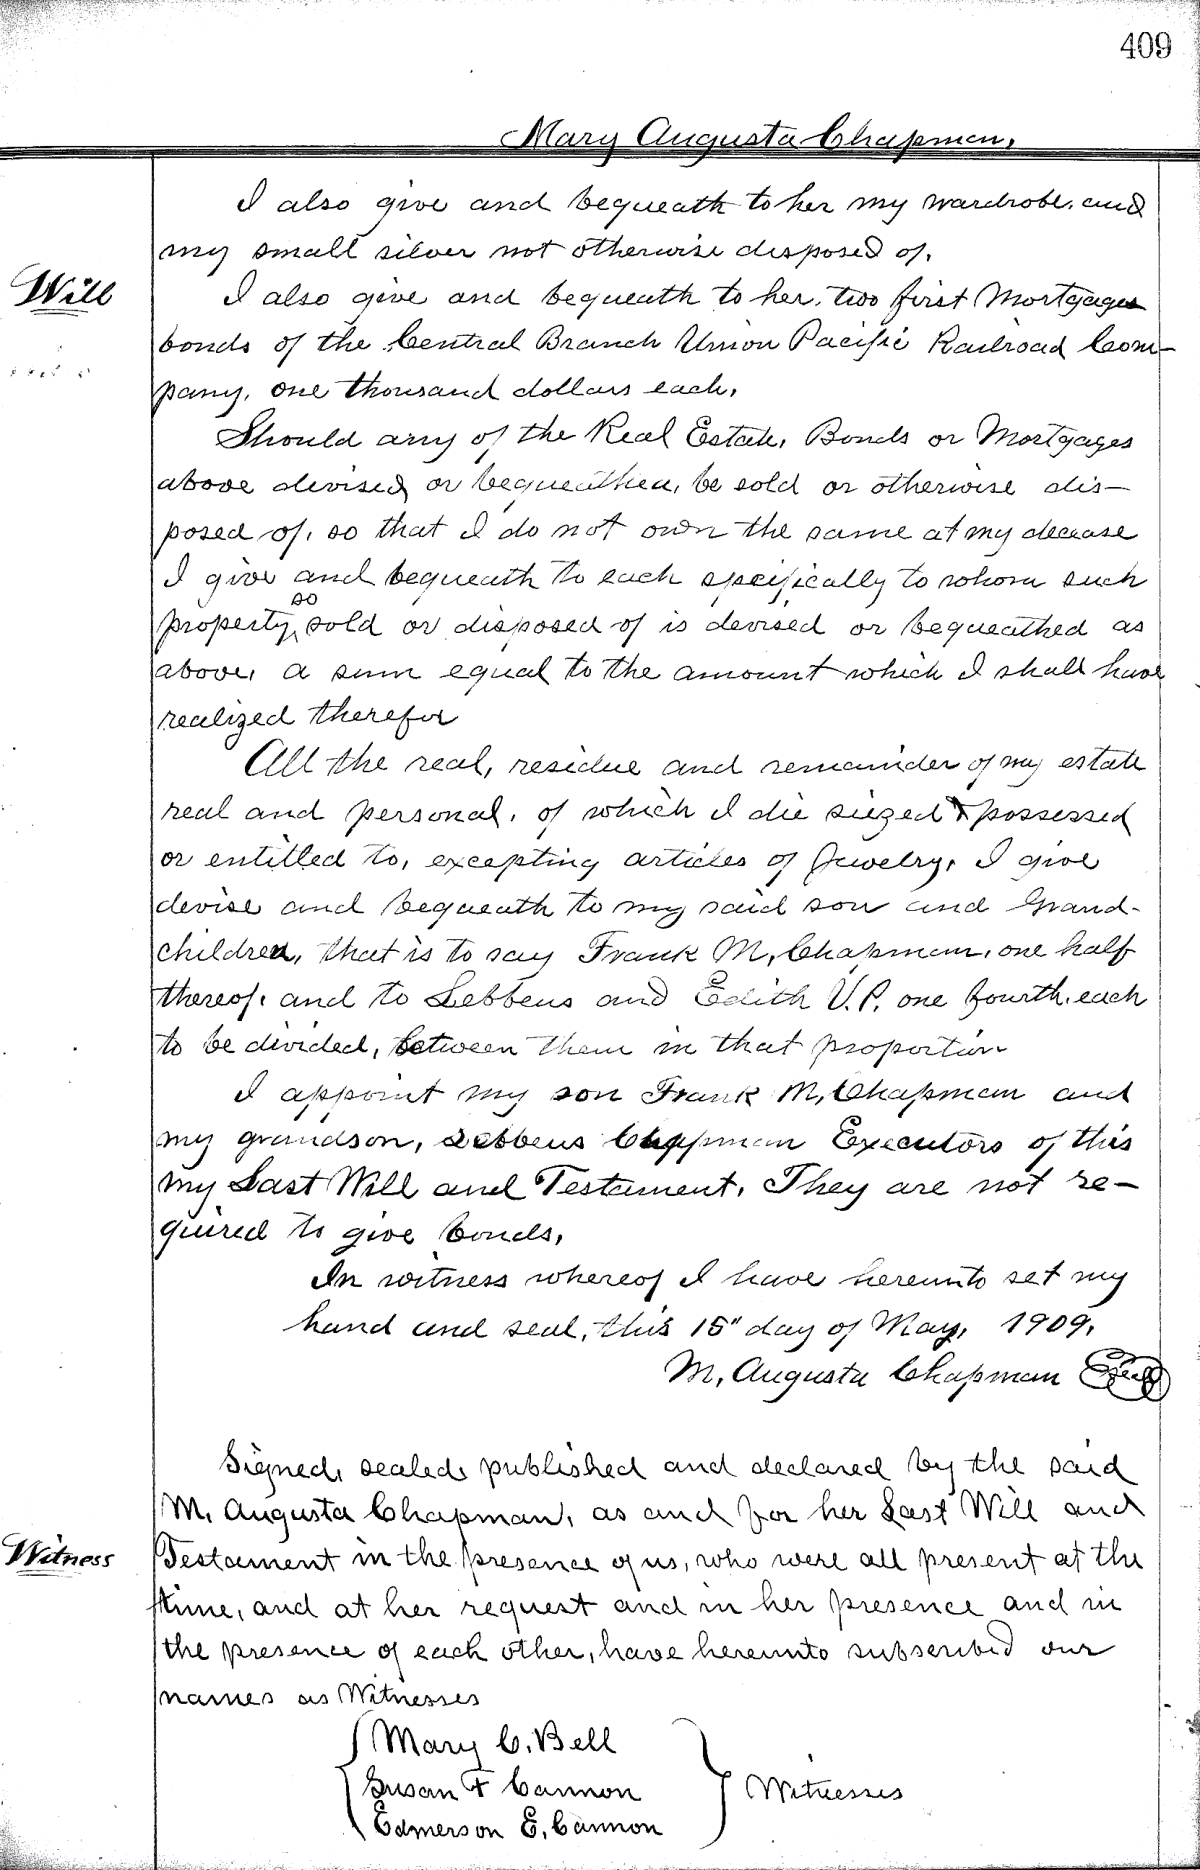 409
Mary Augusta Chapman.
I also give and bequeath to her my wardrobe. and
my small silver not otherwise disposed of.
Will
I also give and bequeath to her, two first Mortgages
bonds of the Central Branch Union Pacific Railroad Com-
pany, one thousand dollars each.
Should any of the Real Estate, Bonds or Mortgages
above devised or bequeathed, be sold or otherwise dis-
posed of, so that I do not own the same at my decease
I give and bequeath to each specifically to whom such
so
property, sold or disposed of is devised or bequeathed as
above, a sum equal to the amount which I shall have
realized therefor
All the real, residue and remainder of my estate
real and personal, of which I die siezed & possessed
or entitled to, excepting articles of Jewelry, I give
devise and bequeath to my said son and Grand-
children, that is to say Frank M, Chapman, one half
thereof, and to Lebbeus and Edith V.P. one fourth, each
to be divided, between them in that proportion
I appoint my son Frank M, Chapman and
my grandson, Lebbeus Chapman Executors of this
my Last Will and Testament. They are not re-
quired to give bonds.
In witness whereof I have hereunto set my
hand and seal, this 15" day of May, 1909.
M, Augusta Chapman Seal
Signed, sealed, published and declared by the said
M. Augusta Chapman, as and for her Last Will and
Witness
Testament in the presence of us, who were all present at the
time, and at her request and in her presence and in
the presence of each other, have hereunto subscribed our
names as Witnesses
Mary C. Bell
Susan F Cannon
Witnesses
Edmerson E. Cannon